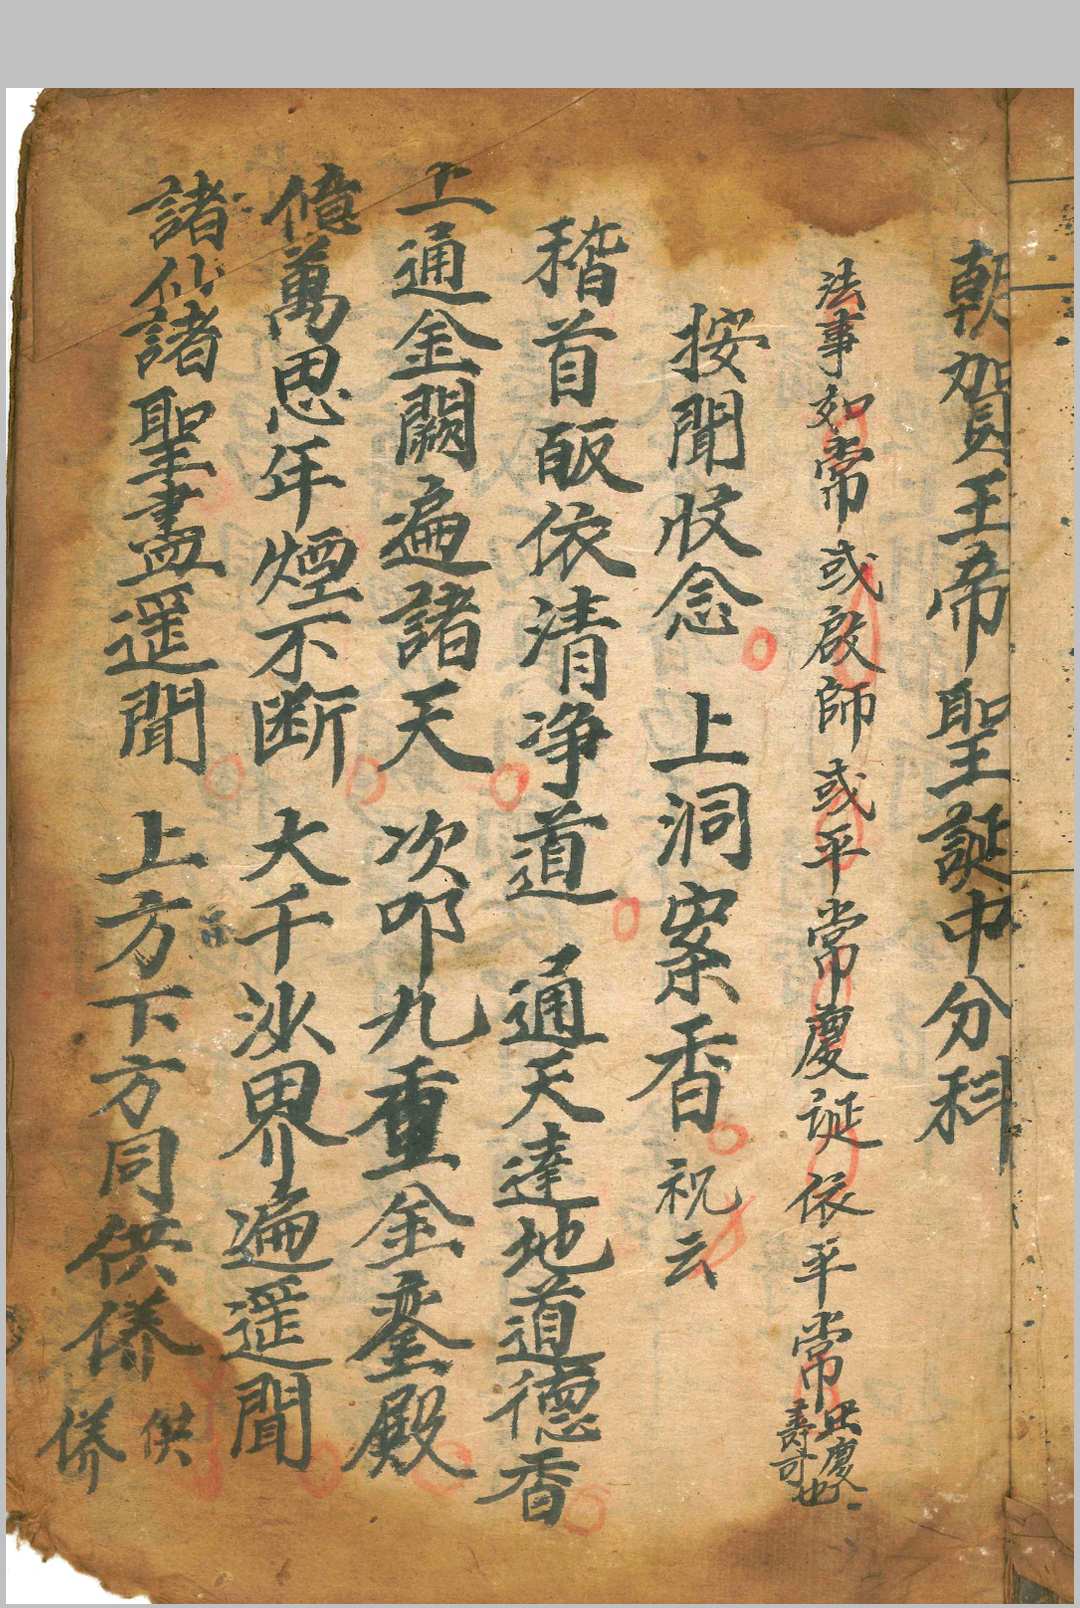 朝賀王帝聖誕中分科
法事如常或啟師或平常慶誕依平常
按聞收念 上洞案香 祝云
稽首皈依清净道 通天達地道德香
上通金闕遍諸天 次叩九重金銮殿
億萬思年煙不断 大千沙界遍遥聞
諸仙諸聖盡遥聞 上方下方同供養
供養